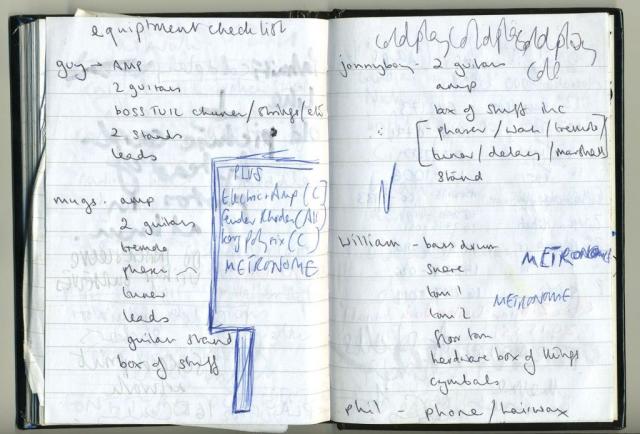 equiptment checklist
guy → AMP
2 guitars
BOSS TU12 chuner/strings/etc
2 stands
leads
mugs. amp
2 guitars
tremelo
phaser
tuner
leads
guitar stand
box of stuff
PLUS
Electric + Amp (C)
fender Rhodes (All)
korg poly six (C)
METRONOME
coldplay coldplay coldplay
jonnyboy - 2 guitars
amp
box of stuff inc
- phaser / wah / tremelo /
tuner / delay / marshall
stand
William - bass drum
METRONOME
snare
tom 1
METRONOME
tom 2
floor tom
hardware box of things
cymbals
phil - phone / hairwax